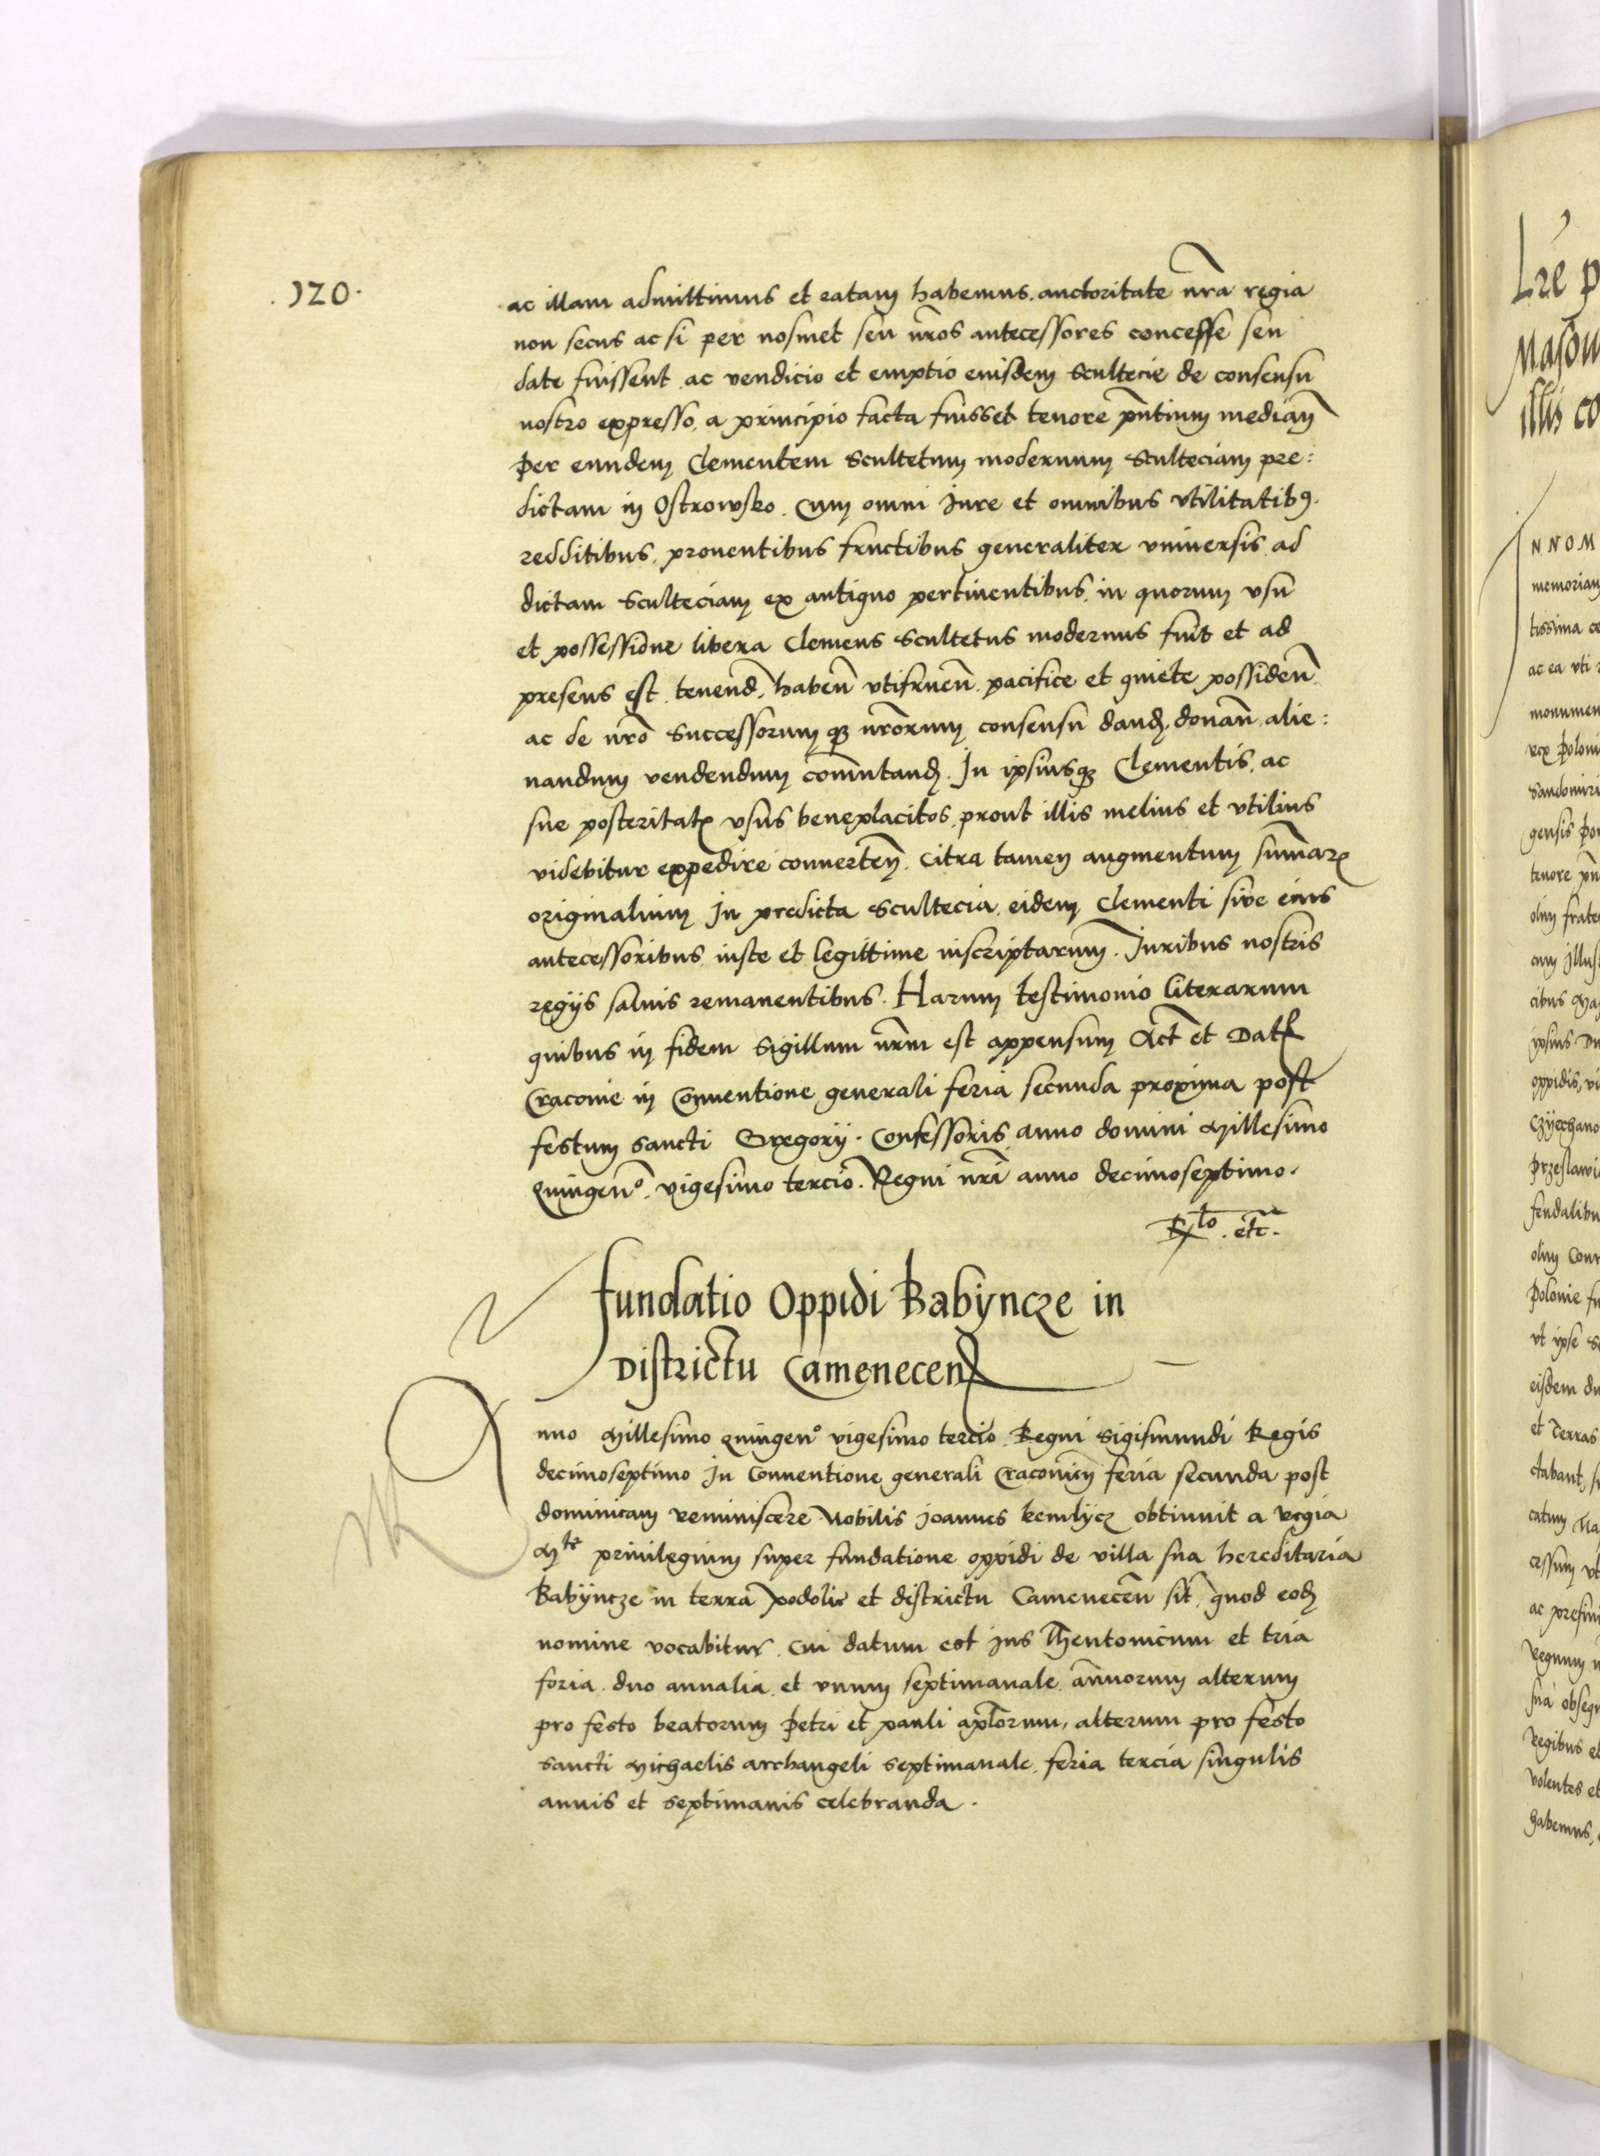 .120.
ac illam admittimus et ratam habemus, auctoritate nr̃a regia
non secus ac si per nosmet seu nr̃os antecessores concesse seu
date fuissent, ac vendicio et emptio eiusdem Scultecie de consensu
nostro expresso, a principio facta fuisset tenore pñtium median̄
per eundem Clementem Scultetum modernum Sculteciam pre:
dictam in Ostrowsko. Cum omni Jure et omnibus vtilitatibꝯ.
redditibus, prouentibus fructibus generaliter vniuersis, ad
dictam Sculteciam ex antiquo pertinentibus, in quorum vsu
et possessione libera Clemens Scultetus modernus fuit et ad
presens est. tenend̄, haben̄ vtifruen̄, pacifice et quiete possiden̄
ac de nr̃o Successorum qꝫ nr̃orum consensu dandꝫ, donan̄ alie:
nandum vendendum com̄utandꝫ. In ipsiusqꝫ Clementis, ac
sue posteritatꝭ vsus beneplacitos, prout illis melius et vtilius
videbitur expedire conuerten̄. Citra tamen augmentum sum̄arꝝ
originalium in predicta Scultecia, eidem Clementi siue eius
antecessoribus, iuste et legittime inscriptarum. Juribus nostris
regijs saluis remanentibus. Harum testimonio literarum
quibus in fidem Sigillum nr̃m est appensum Act̄ et Datꝭ
Cracouie in Conuentione generali feria secunda proxima post
festum Sancti Gregorij. Confessoris anno domini Millesimo
Quingenº. vigesimo tercio. Regni nr̃i anno decimoseptimo.
Rᵗᵒ. etc̄.
Fundatio Oppidi Babyncze in
Districtu Camenecenꝭ
Anno Millesimo Quingenº vigesimo tercio. Regni Sigismundi Regis
decimoseptimo In Conuentione generali Cracouien̄ feria secunda post
dominicam reminiscere Nobilis Joannes kemlycz obtinuit a regia
Mᵗᵉ priuilegium super fundatione oppidi de villa sua hereditaria
Babyncze in terra podolie et districtu Camenecen̄ sit̄, quod eodꝫ
nomine vocabitur. Cui datum est Jus Thentonicum et tria
foria. duo annalia, et vnum septimanale. an̄uorum alterum
pro festo beatorum Petri et pauli apl̄orum, alterum pro festo
Sancti Michaelis archangeli septimanale, feria tercia singulis
annis et septimanis celebranda.